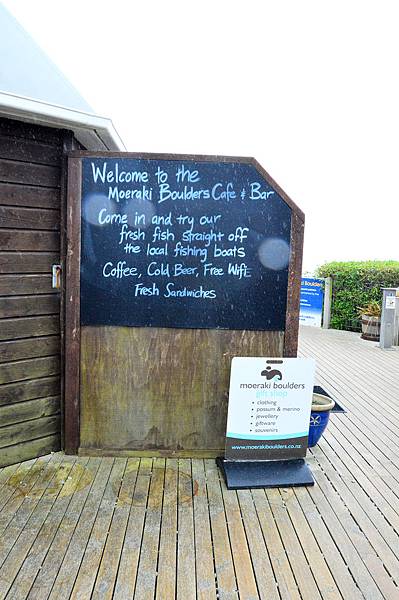 Welcome to the
Moeraki Boulders Cafe & Bar
Come in and try our
fresh fish straight off
the local fishing boats
Coffee, Cold Beer, Free Wifi
Fresh Sandwiches
moeraki boulders
gift shop
• clothing
• possum & merino
• jewellery
• giftware
• souvenirs
www.moerakiboulders.co.nz